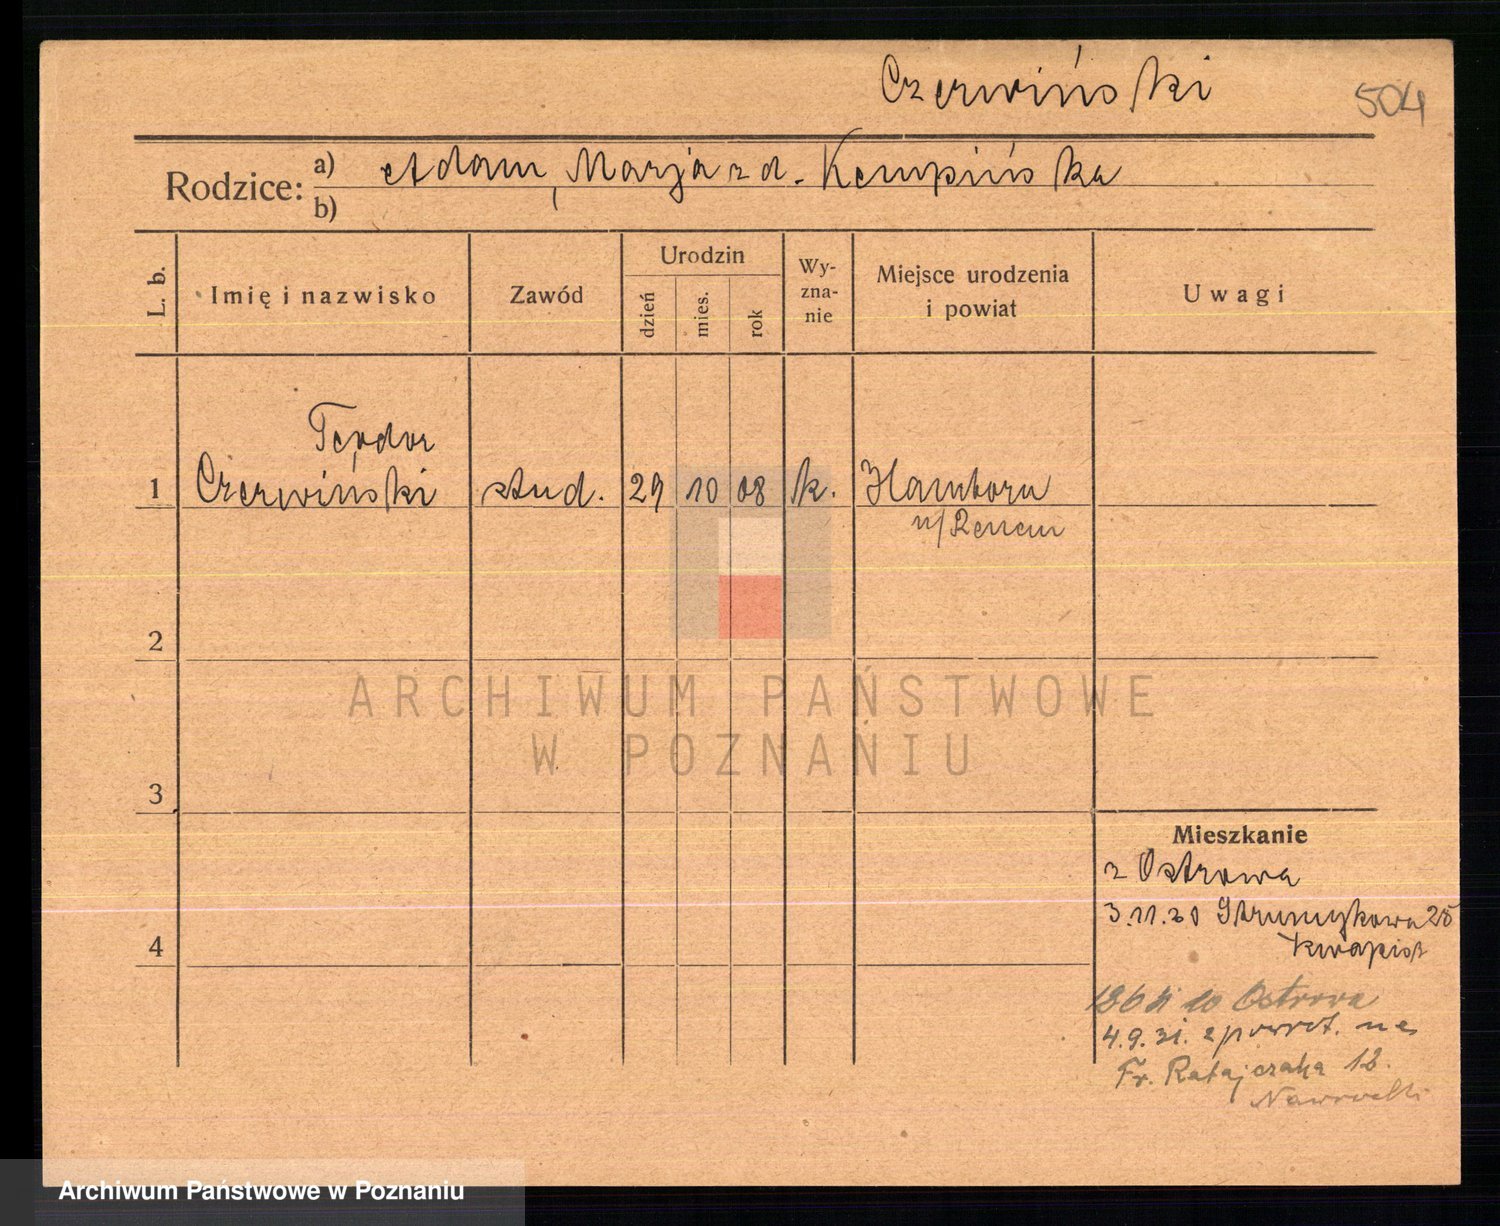 Czerwiński
504
Rodzice:
a) Adam, Marja z d. Kempińska
b)
L. b.
Imię i nazwisko
Zawód
Urodzin
dzień
mies.
rok
Wy-
zna-
nie
Miejsce urodzenia
i powiat
Uwagi
Teodor
1 Czerwiński stud. 29 10 08 k. Hamborn
n/Renem
2
ARCHIWUM PAŃSTWOWE
W POZNANIU
3
Mieszkanie
z Ostrowa
3.11.30 Strumykowa 25
Kwapisz
Ostrowa
4
4.9.31. z powrot. na
Fr. Ratajczaka 12.
Archiwum Państwowe w Poznaniu